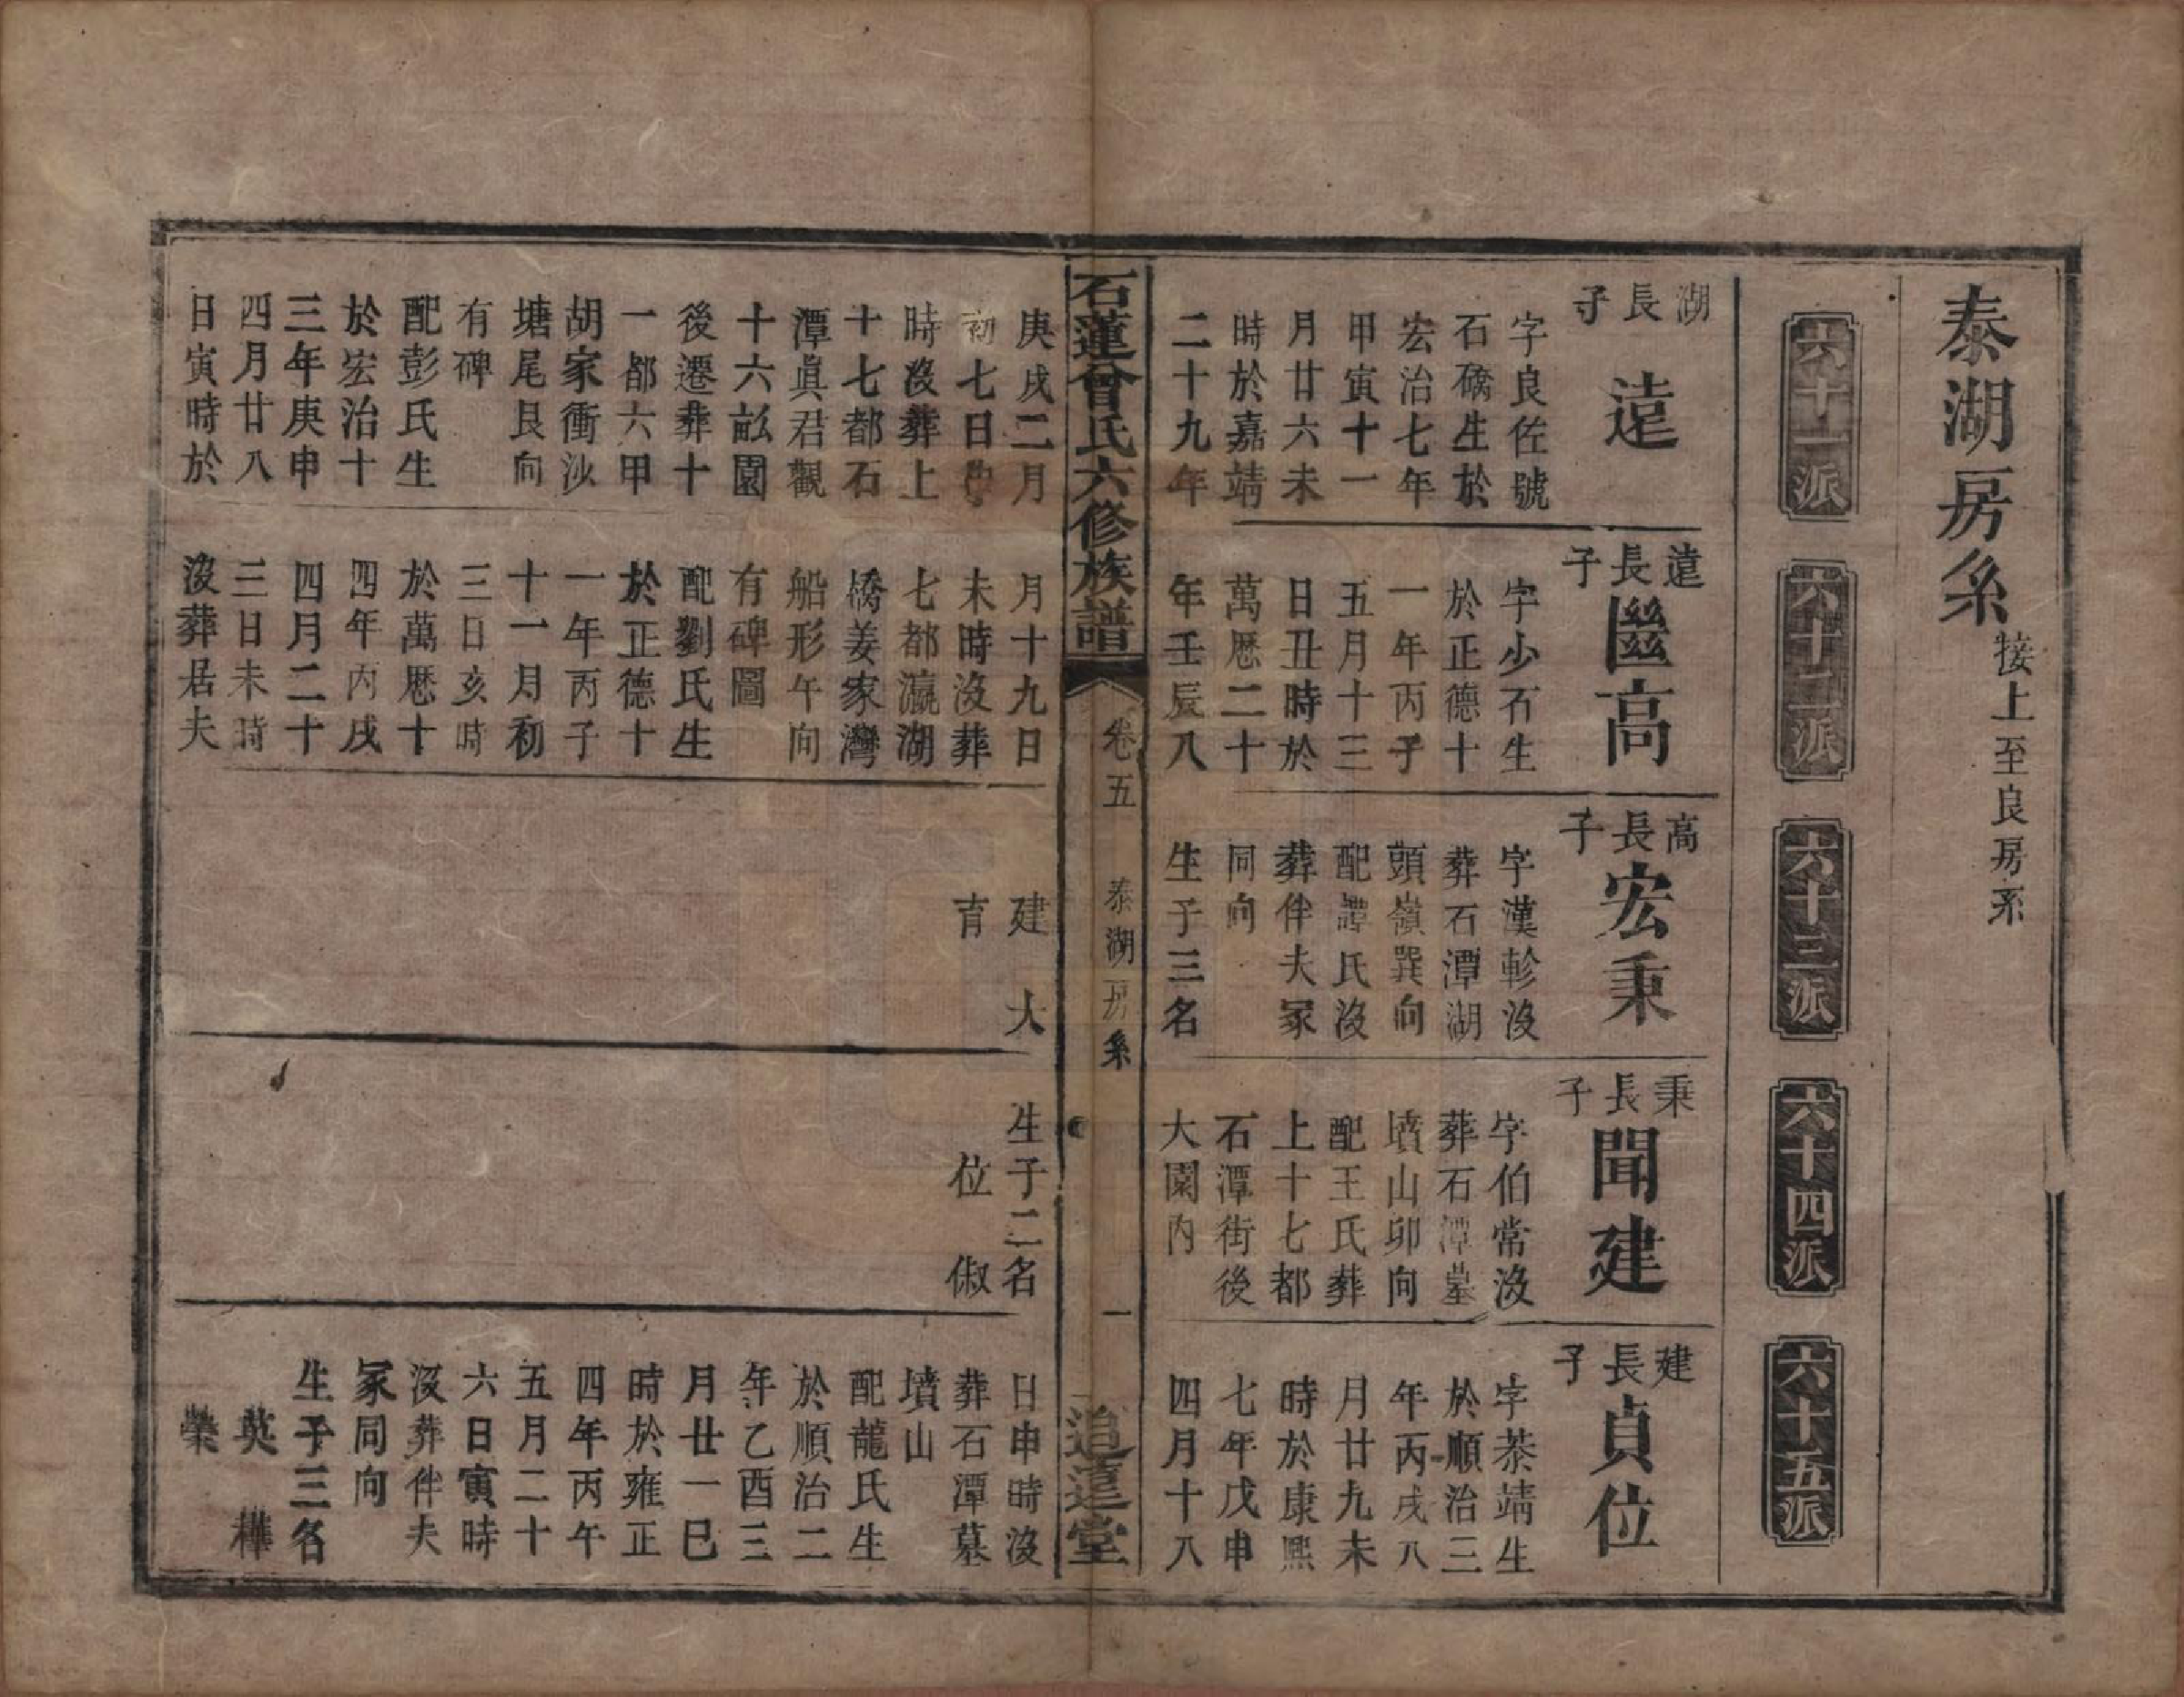 泰湖房系
接上至良房系
六十一派
六十二派
六十三派
六十四派
六十五派
湖長子
遠
字良佐號
石礄生於
宏治七年
甲寅十一
月廿六未
時於嘉靖
二十九年
遠長子
繼高
字少石生
於正德十
一年丙子
五月十三
日丑時於
萬厯二十
年壬辰八
高長子
宏秉
字漢軫沒
葬石潭湖
頭嶺巽向
配譚氏沒
葬伴夫冢
同向
生子三名
秉長子
聞建
字伯常沒
葬石潭墓
墳山卯向
配王氏葬
上十七都
石潭街後
大園內
建長子
貞位
字恭靖生
於順治三
年丙戌八
月廿九未
時於康熙
七年戊申
四月十八
石蓮曾氏六修族譜
卷五
泰湖房系
一
追遠堂
庚戌二月
初七日
時沒葬上
十七都石
潭眞君觀
十六畝園
後遷葬十
一都六甲
胡家衝沙
塘尾艮向
有碑
配彭氏生
於宏治十
三年庚申
四月廿八
日寅時於
月十九日
未時沒葬
七都瀛湖
橋姜家灣
船形午向
有碑圖
配劉氏生
於正德十
一年丙子
十一月初
三日亥時
於萬厯十
四年丙戌
四月二十
三日未時
沒葬居夫
建 大
育
生子二名
位 俶
日申時沒
葬石潭墓
墳山
配龍氏生
於順治二
年乙酉三
月廿一巳
時於雍正
四年丙午
五月二十
六日寅時
沒葬伴夫
冢同向
生子三名
英 樺
榮